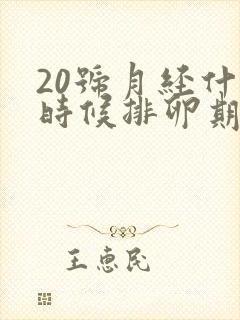 20號月経什
時候排卵期
王惠民